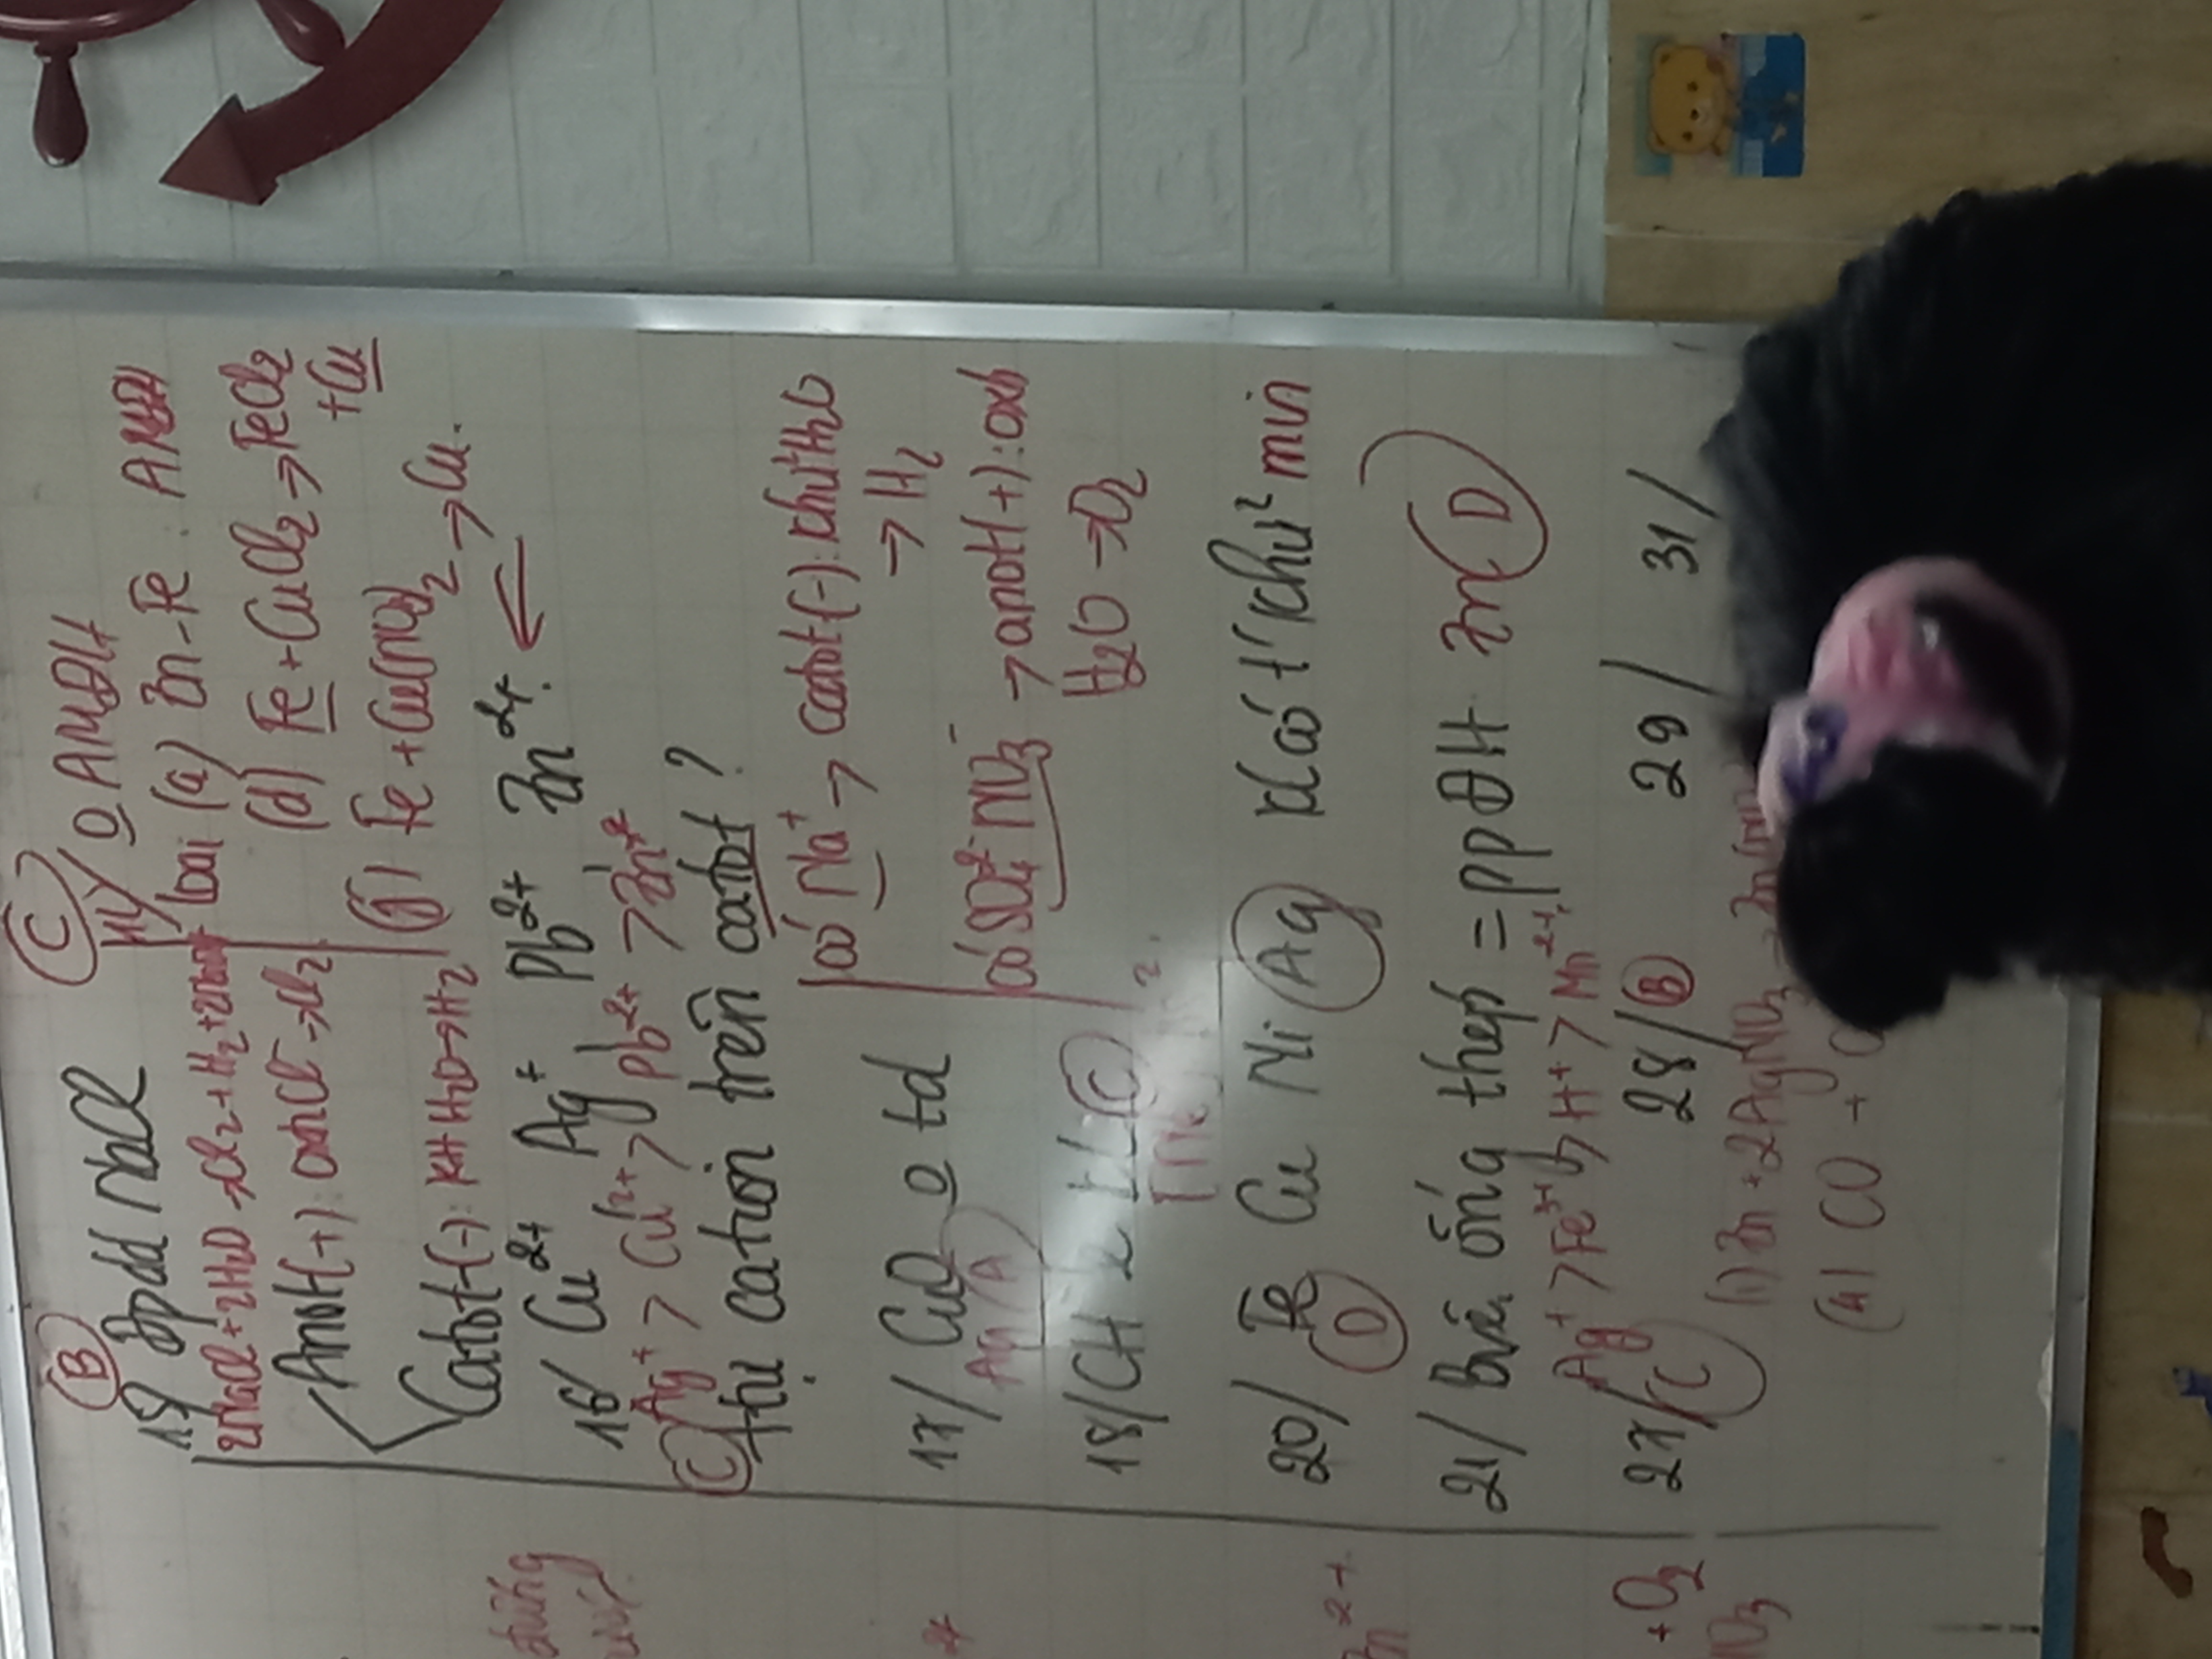 B
15/ Đpdd NaCl
2NaCl + 2H2O → Cl2 + H2 + 2NaOH
Anot (+): oxh Cl- → Cl2
Catot (-): KH H2O → H2
C
19/ 0 AMĐH
loại (a) Zn-Fe. AMĐH
(d) Fe + CuCl2 → FeCl2
+ Cu
(g) Fe + Cu(NO3)2 → Cu.
16/ Cu2+, Ag+, Pb2+, Zn2+.
Ag+ > Cu2+ > Pb2+ > Zn+2
C
ttự cation trên catot?
có Na+ → catot (-): khử H2O
→ H2
17/ CuO 0 td
Ag A
có SO4 2- NO3- → anot (+): oxh
H2O → O2
18/ CH e KL C
20/ Fe Cu Ni Ag kl có t' khử min
D
21/ Bvệ ống thép = pp ĐH Zn D
Ag+ > Fe3+ > H+ > Mn2+.
27/ C
28/ B
29/
31/
(1) Zn + 2AgNO3 →
(4) CO +
đứng
+ O2